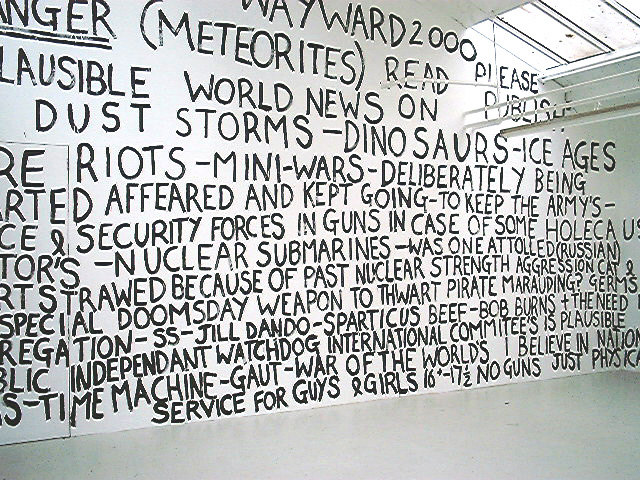 ANGER (METEORITES) WAYWARD 2000
LAUSIBLE WORLD NEWS ON READ PLEASE
DUST STORMS - DINOSAURS - ICE AGES
RE RIOTS - MINI-WARS - DELIBERATELY BEING
ARTED AFFEARED AND KEPT GOING - TO KEEP THE ARMY'S -
CE & SECURITY FORCES IN GUNS IN CASE OF SOME HOLECAUS
TOR'S - NUCLEAR SUBMARINES - WAS ONE ATTOLLED (RUSSIAN)
RT STRAWED BECAUSE OF PAST NUCLEAR STRENGTH AGGRESSION CAT &
SPECIAL DOOMSDAY WEAPON TO THWART PIRATE MARAUDING? GERMS
REGATION - SS - JILL DANDO - SPARTICUS BEEF - BOB BURNS + THE NEED
BLIC INDEPENDANT WATCHDOG INTERNATIONAL COMMITEE'S IS PLAUSIBLE
S - TIME MACHINE - GAUT - WAR OF THE WORLDS I BELIEVE IN NATION
SERVICE FOR GUYS & GIRLS 16+ - 17½ NO GUNS JUST PHYSIC